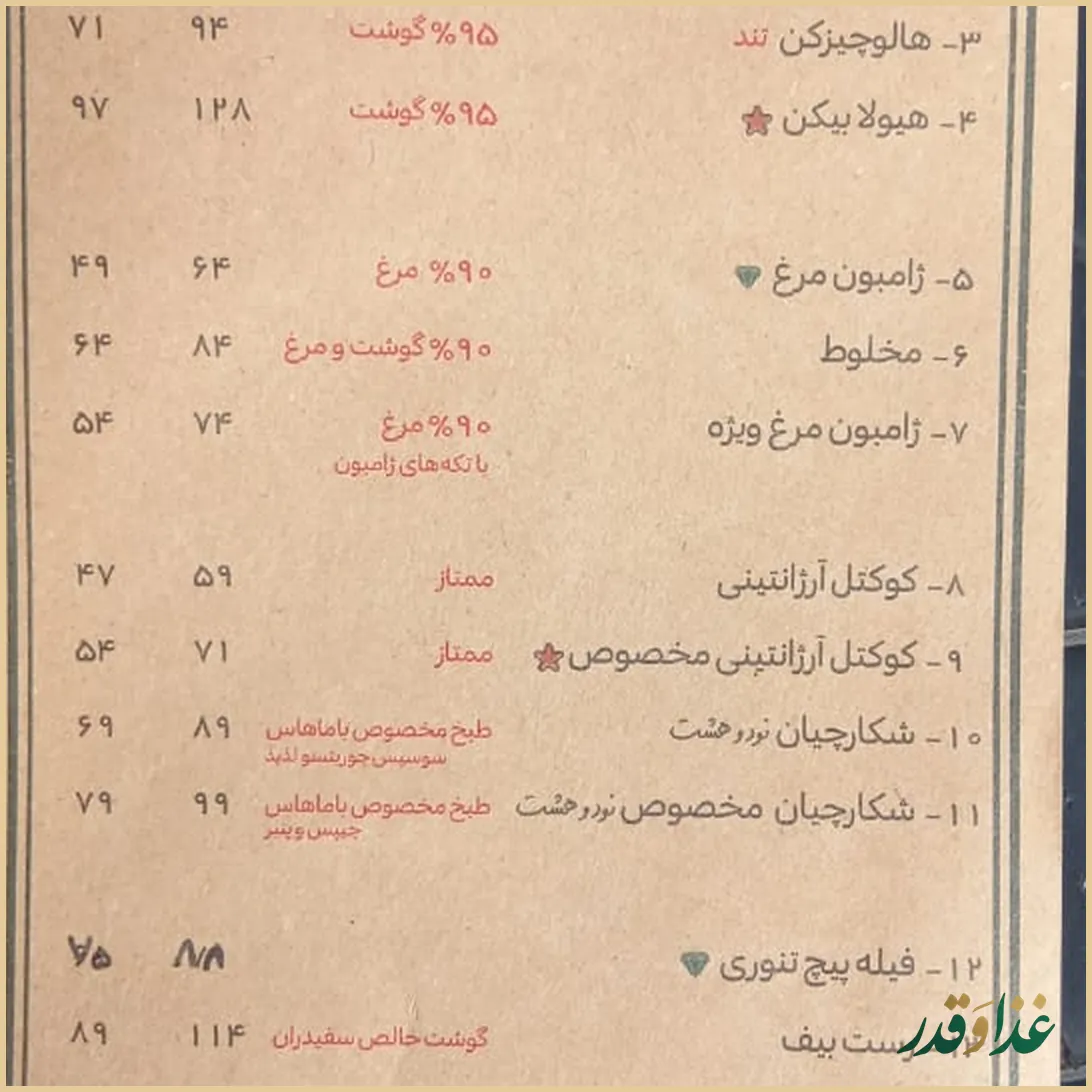 ۳- هالوچیزکن تند %۹۵ گوشت ۹۴ ۷۱
۴- هیولا بیکن %۹۵ گوشت ۱۲۸ ۹۷
۵- ژامبون مرغ %۹۰ مرغ ۶۴ ۴۹
۶- مخلوط %۹۰ گوشت و مرغ ۸۴ ۶۴
۷- ژامبون مرغ ویژه %۹۰ مرغ ۷۴ ۵۴
با تکه‌های ژامبون
۸- کوکتل آرژانتینی ممتاز ۵۹ ۴۷
۹- کوکتل آرژانتینی مخصوص ممتاز ۷۱ ۵۴
۱۰- شکارچیان نود و هشت طبخ مخصوص باماهاس ۸۹ ۶۹
سوسیس چوریتسو لذیذ
۱۱- شکارچیان مخصوص نود و هشت طبخ مخصوص باماهاس ۹۹ ۷۹
چیپس و پنیر
۱۲- فیله پیچ تنوری
رست بیف گوشت خالص سفیدران ۱۱۴ ۸۹
غذا و قدر